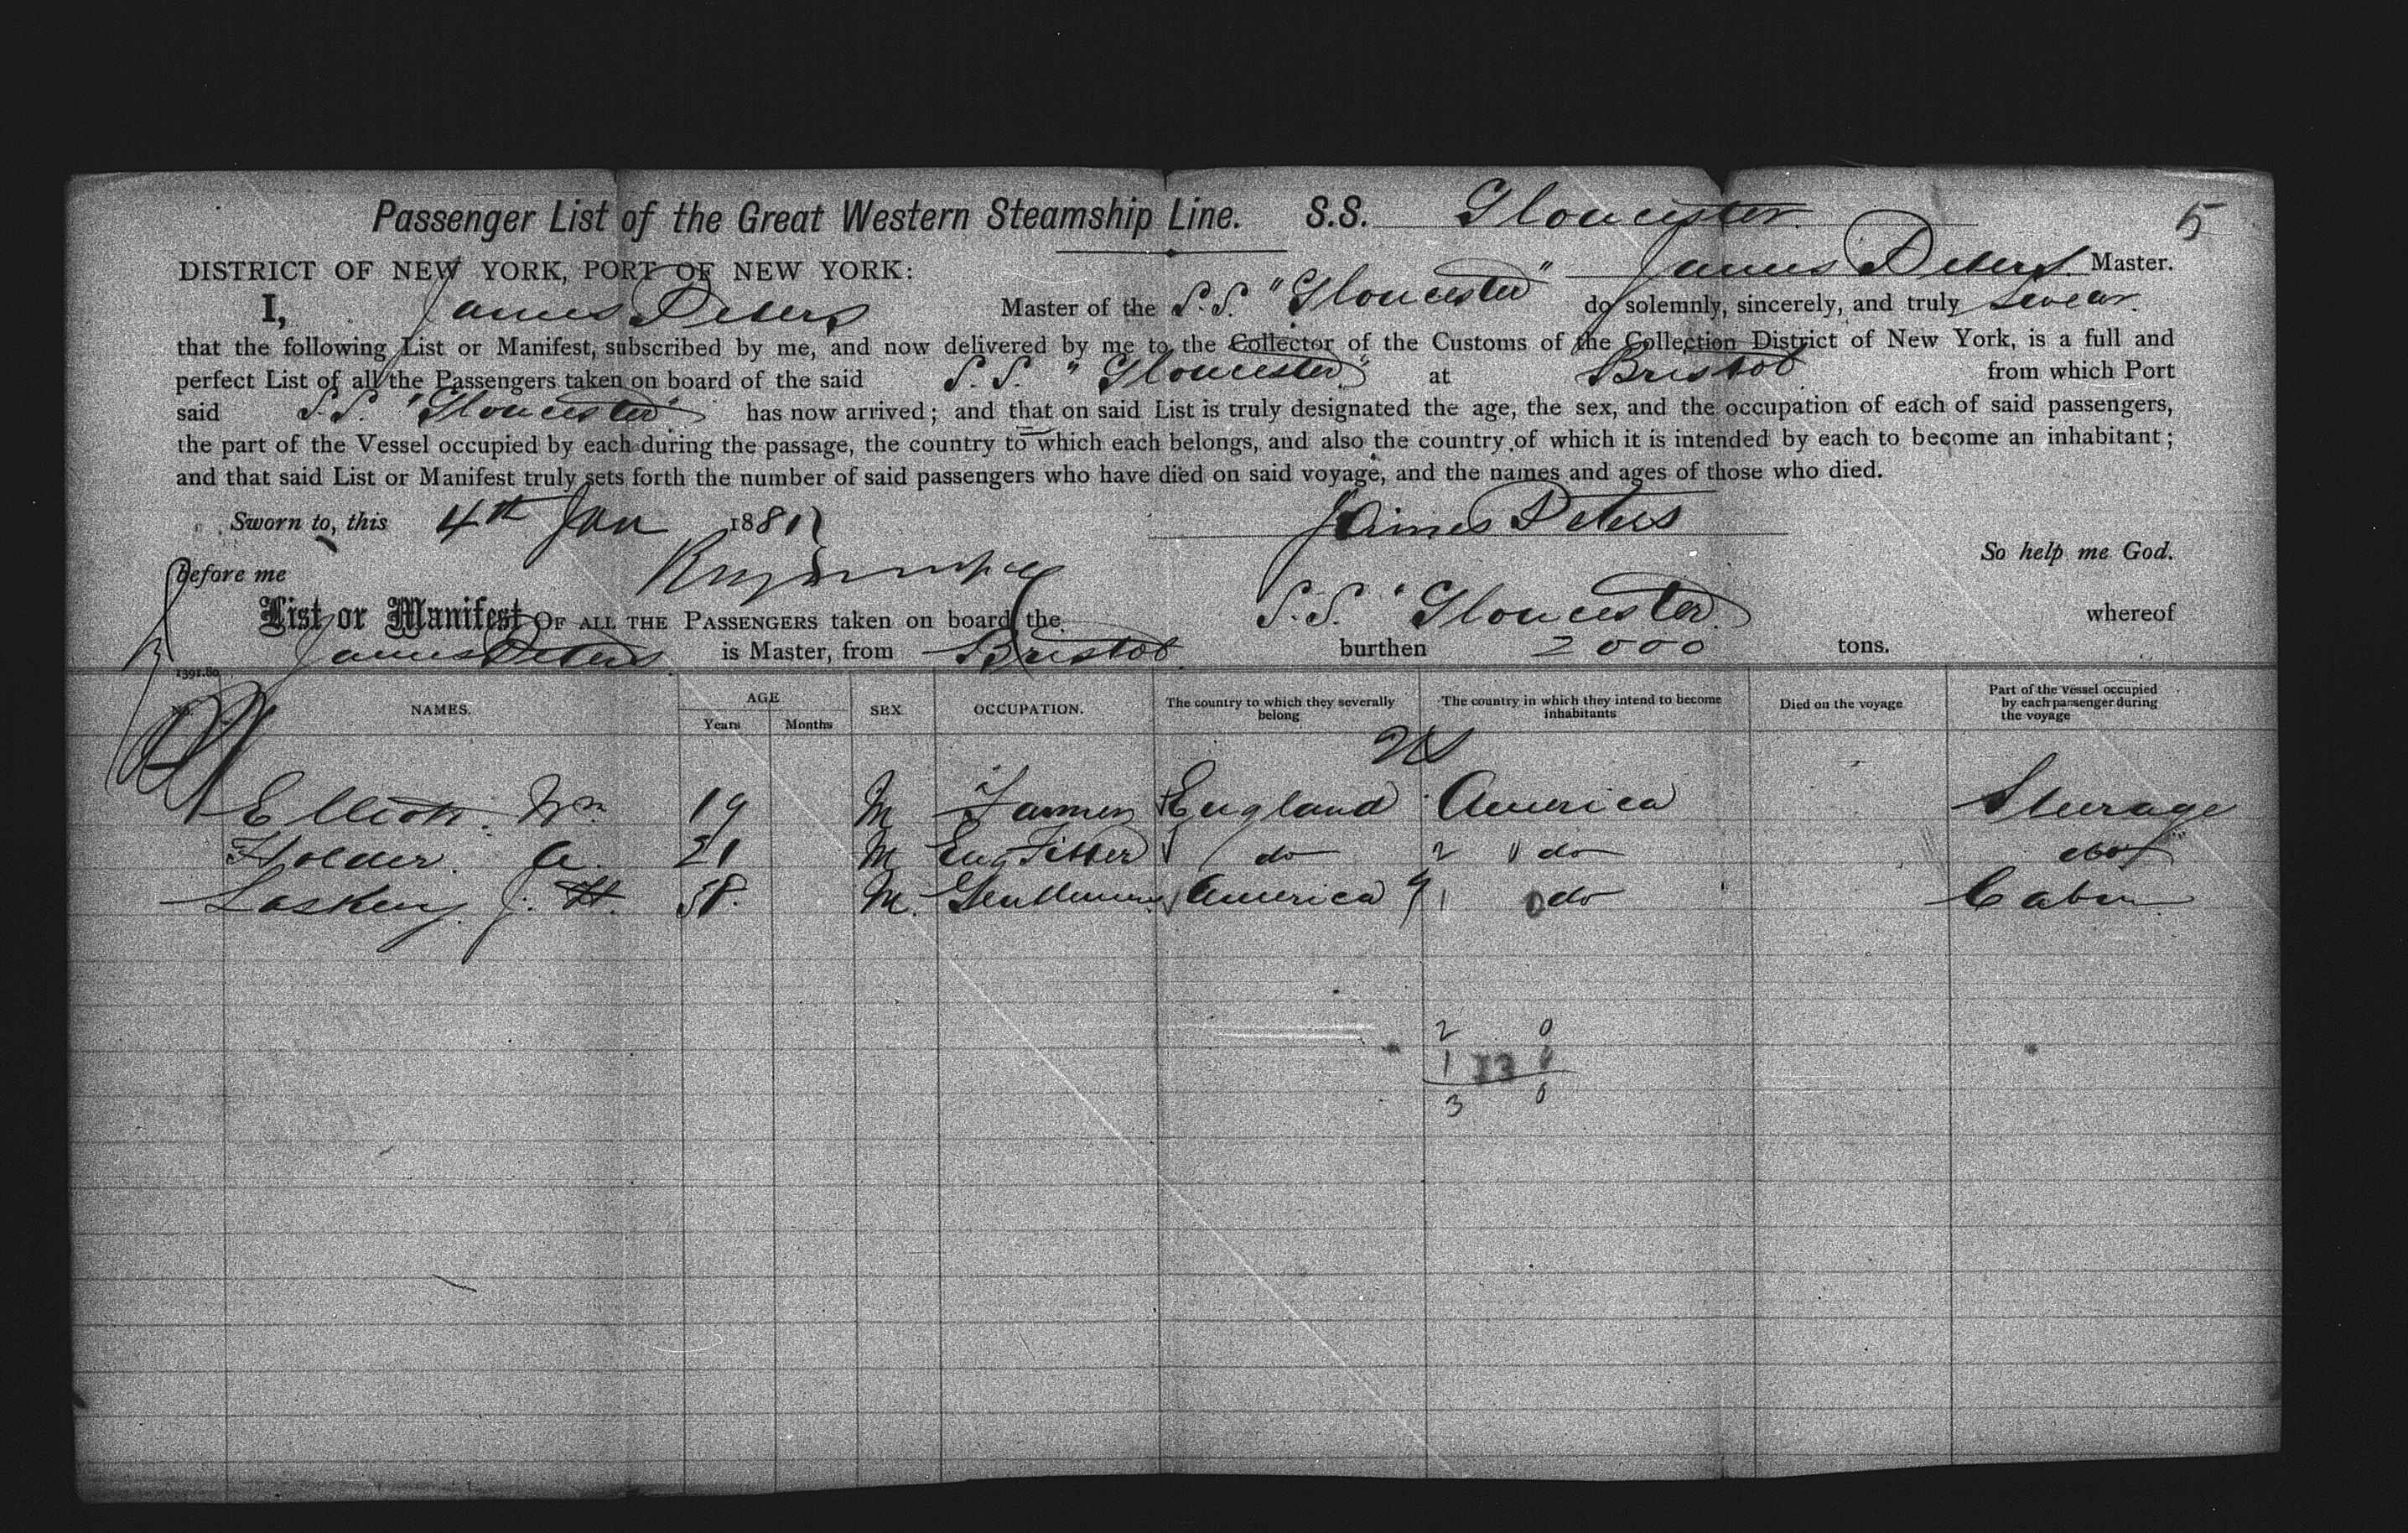 Passenger List of the Great Western Steamship Line. S.S. Gloucester 5
DISTRICT OF NEW YORK, PORT OF NEW YORK: James Peters Master.
I, James Peters Master of the S.S. "Gloucester" do solemnly, sincerely, and truly swear.
that the following List or Manifest, subscribed by me, and now delivered by me to the Collector of the Customs of the Collection District of New York, is a full and
perfect List of all the Passengers taken on board of the said S.S. "Gloucester" at Bristol from which Port
said S.S. "Gloucester" has now arrived; and that on said List is truly designated the age, the sex, and the occupation of each of said passengers,
the part of the Vessel occupied by each during the passage, the country to which each belongs, and also the country of which it is intended by each to become an inhabitant;
and that said List or Manifest truly sets forth the number of said passengers who have died on said voyage, and the names and ages of those who died.
Sworn to, this 4th Jan 1881 James Peters
So help me God.
before me
List or Manifest OF ALL THE PASSENGERS taken on board the S.S. "Gloucester" whereof
James Peters is Master, from Bristol burthen 2000 tons.
1391.80
No. NAMES. AGE Years Months SEX OCCUPATION. The country to which they severally belong The country in which they intend to become inhabitants Died on the voyage Part of the Vessel occupied by each passenger during the voyage
Elliott. Wm 19 M Farmer England America Steerage
Holder. A. 21 M Eng Fitter do 2 0 do do
J. H. 58. M. Gentleman America 1 0 do Cabin
2 0
1 13
3 0